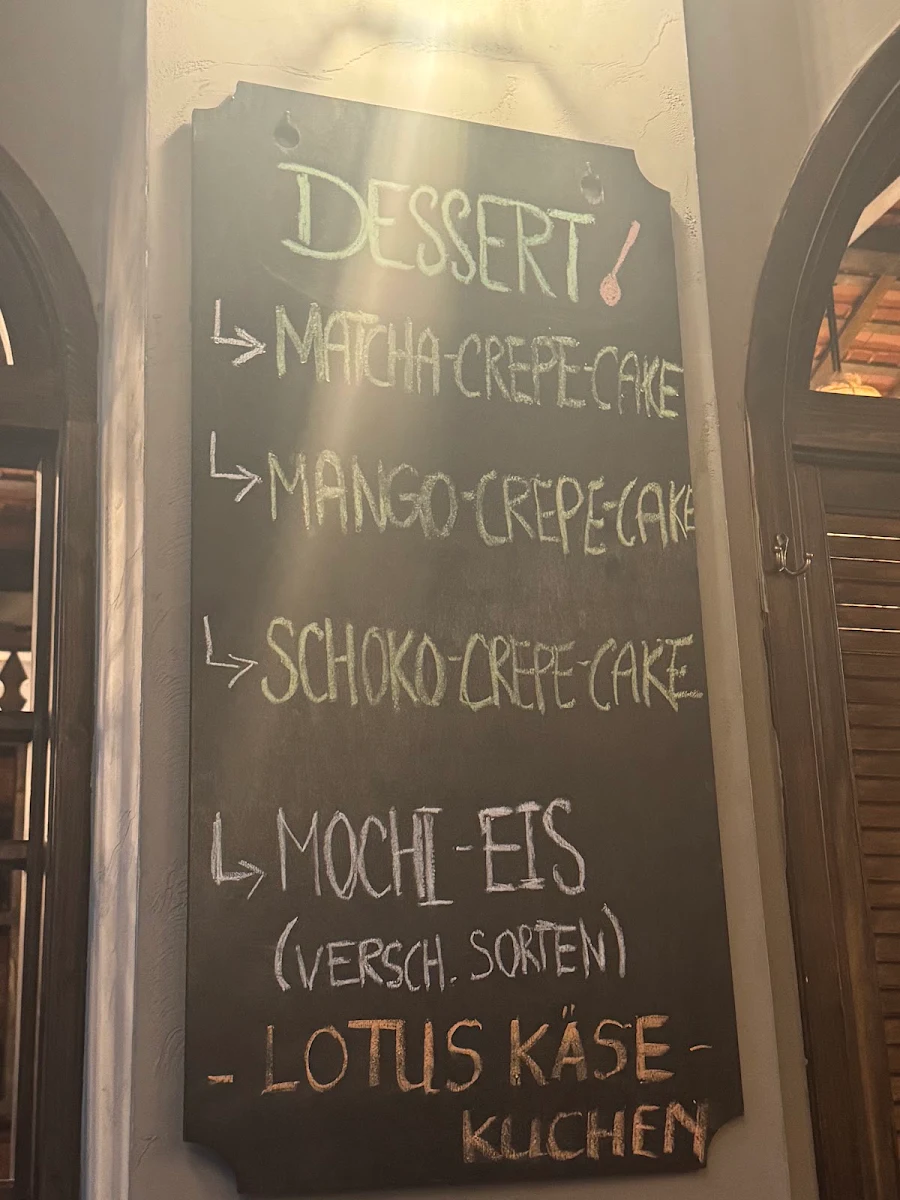 DESSERT!
↳ MATCHA-CREPE-CAKE
↳ MANGO-CREPE-CAKE
↳ SCHOKO-CREPE-CAKE
↳ MOCHI-EIS
(VERSCH. SORTEN)
- LOTUS KÄSE-
KUCHEN